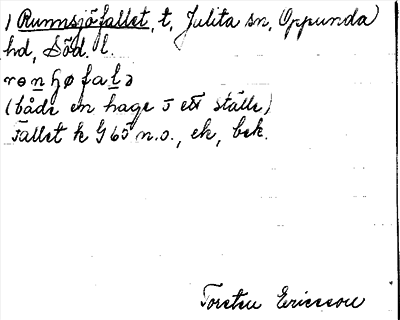 1 Runnsjöfallet, t, Julita sn, Oppunda
hd, Söd. l.
rɵnɧøfalə
(både en hage o ett ställe)
Fallet k G 65 n.o., ek, bek.
Torsten Ericsson